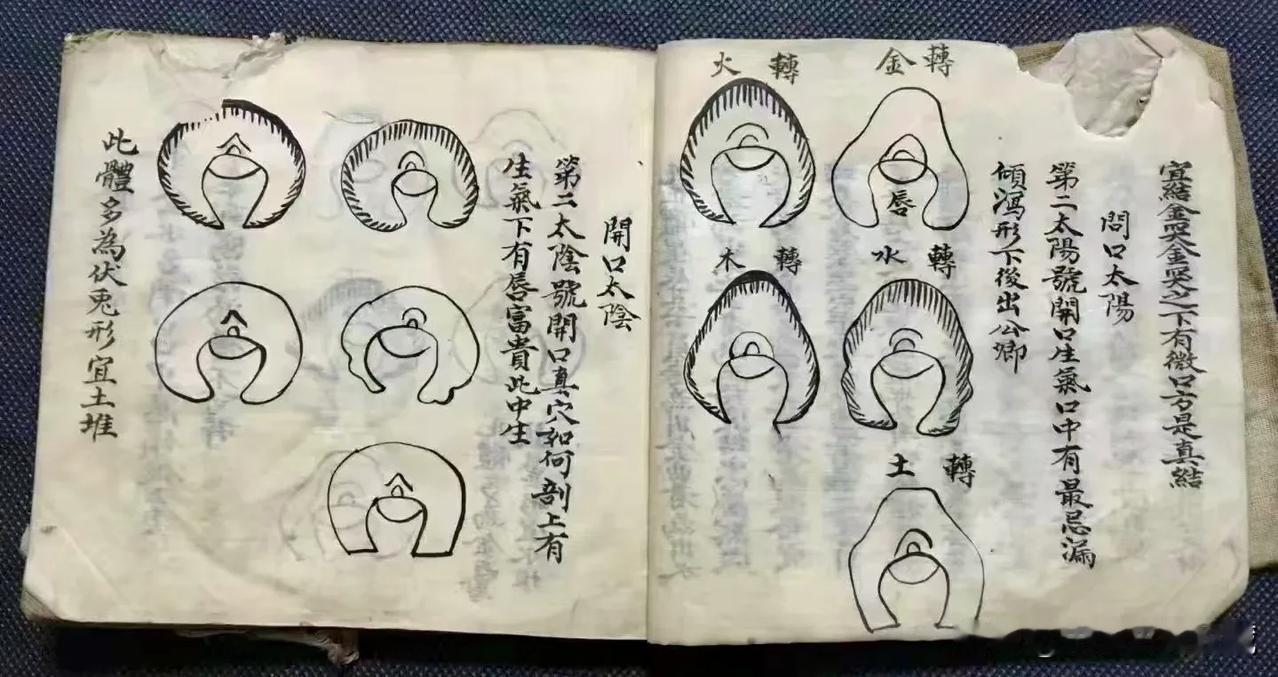 宜結金哭金哭之下有微口方是真結
問口太陽
第二太陽號開口生氣口中有最忌漏
傾瀉形下後出公卿
金轉
唇
火轉
水轉
木轉
土轉
開口太陰
第二太陰號開口真穴如何剖上有
生氣下有唇富貴此中生
此體多為伏兎形宜土堆